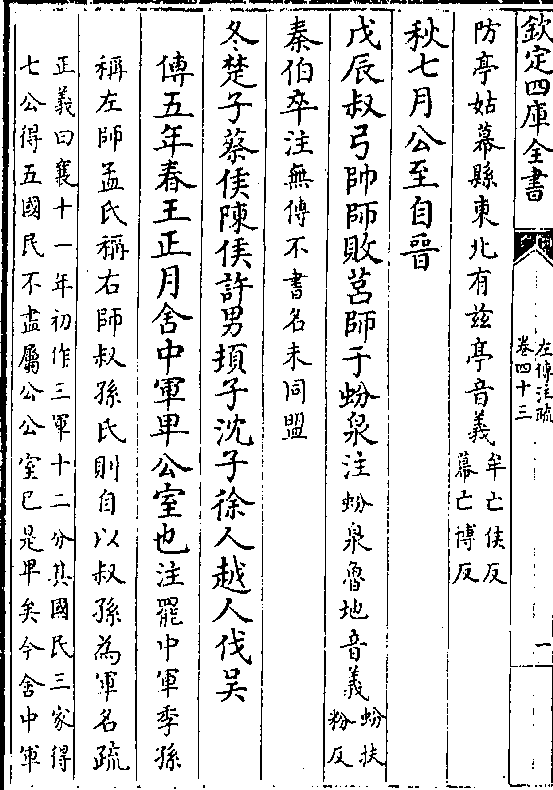 欽定四庫全書
左傳注疏
卷四十三
一
防亭姑幕縣東北有兹亭音義
牟亡侯反
幕亡博反
秋七月公至自晉
戊辰叔弓帥師敗莒師于蚡泉注蚡泉魯地音義
蚡扶
粉反
秦伯卒注無傳不書名未同盟
冬楚子蔡侯陳侯許男頓子沈子徐人越人伐吴
傳五年春王正月舍中軍卑公室也注罷中軍季孫
稱左師孟氏稱右師叔孫氏則自以叔孫為軍名疏
正義曰襄十一年初作三軍十二分其國民三家得
七公得五國民不盡屬公公室已是卑矣今舍中軍